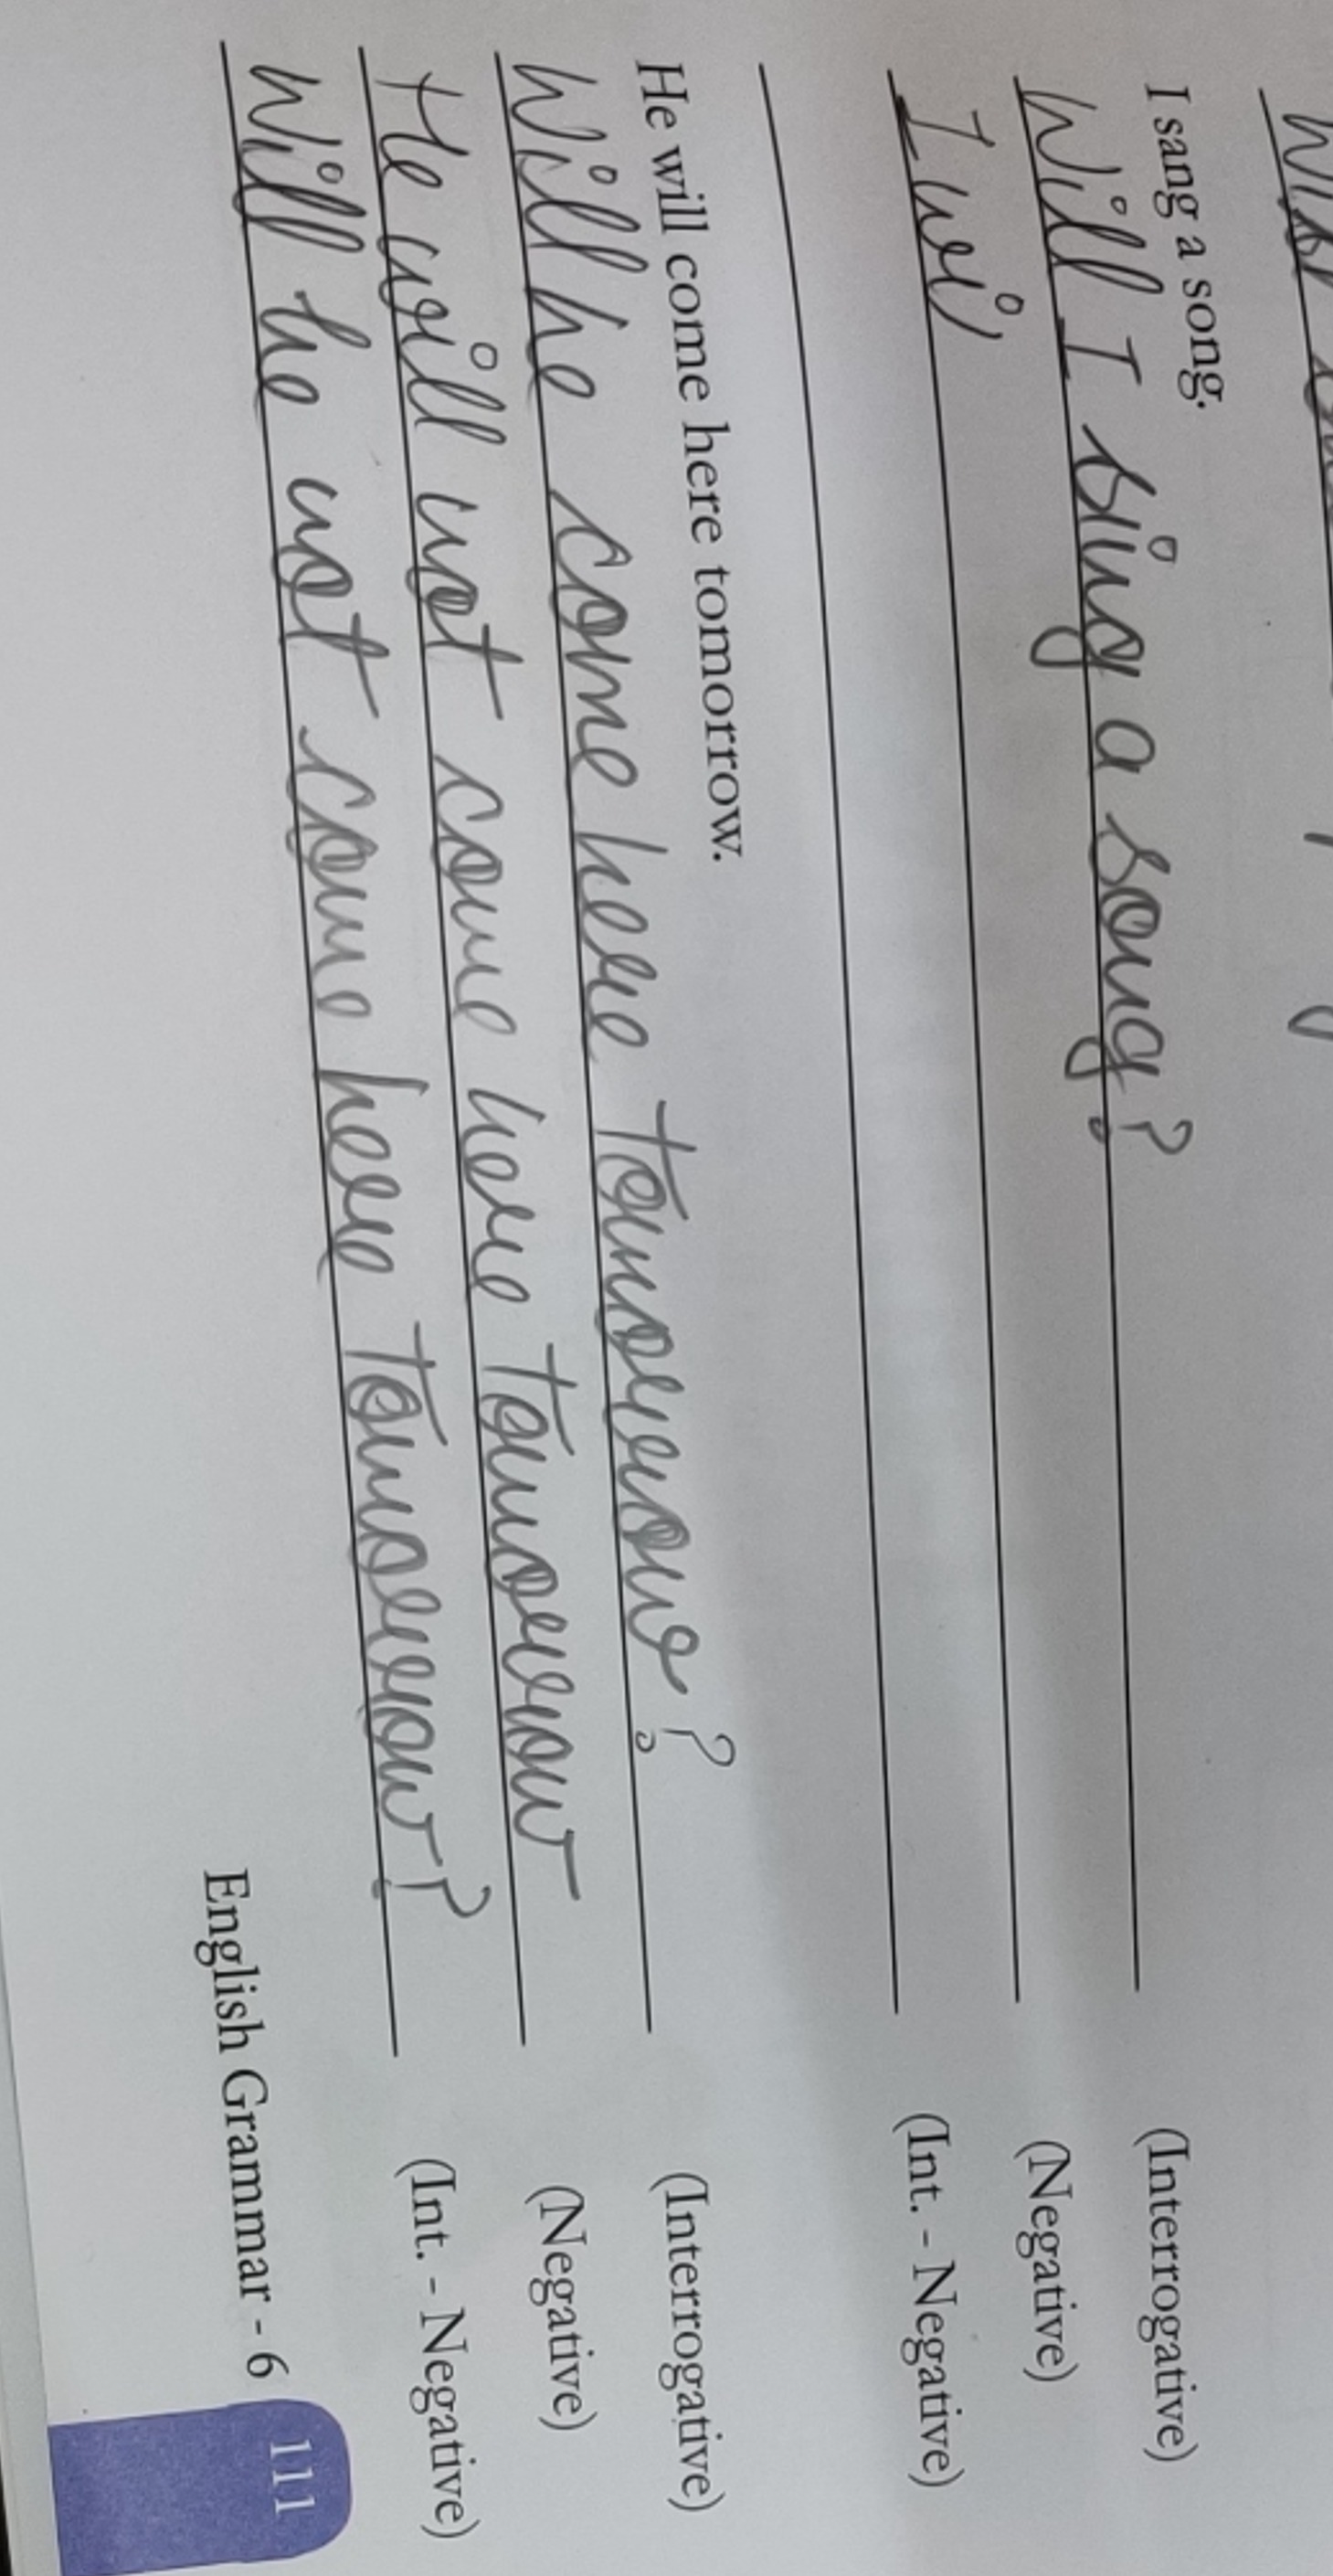 I sang a song.
Will I sing a song? (Interrogative)
I wi (Negative)
(Int. - Negative)
He will come here tomorrow.
Will he come here tomorrow? (Interrogative)
He will not come here tomorrow (Negative)
Will he not come here tomorrow? (Int. - Negative)
English Grammar - 6 111